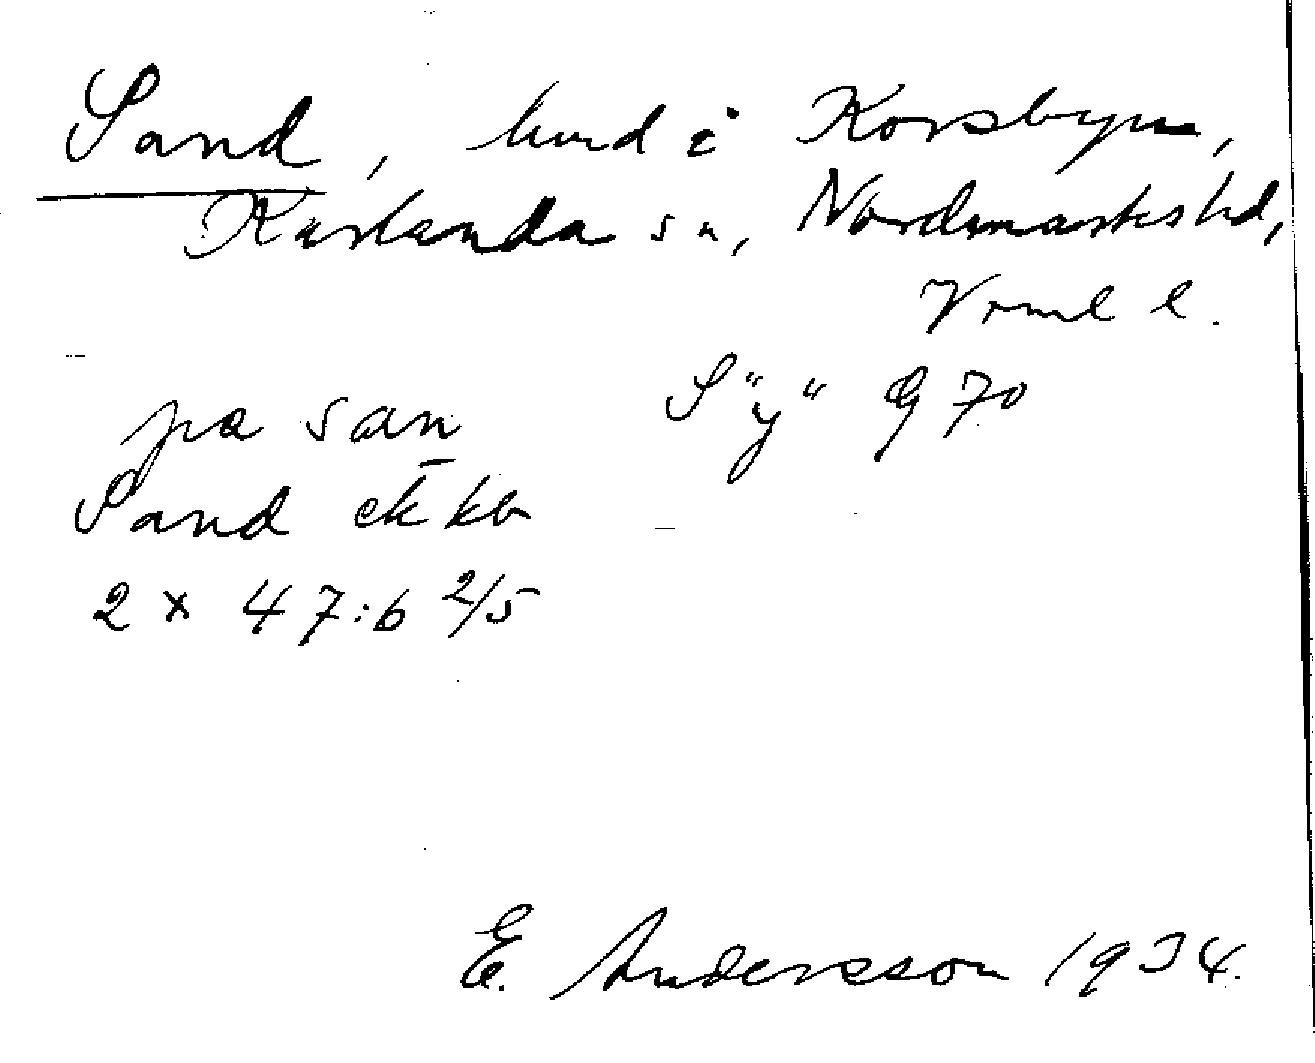 Sand, lund i Korsbyn,
Karlanda sn, Nordmarks hd,
Vrml l.
pa san S "y" G 70
Sand ek kb
2 x 47:6 2/5
E. Andersson 1934.